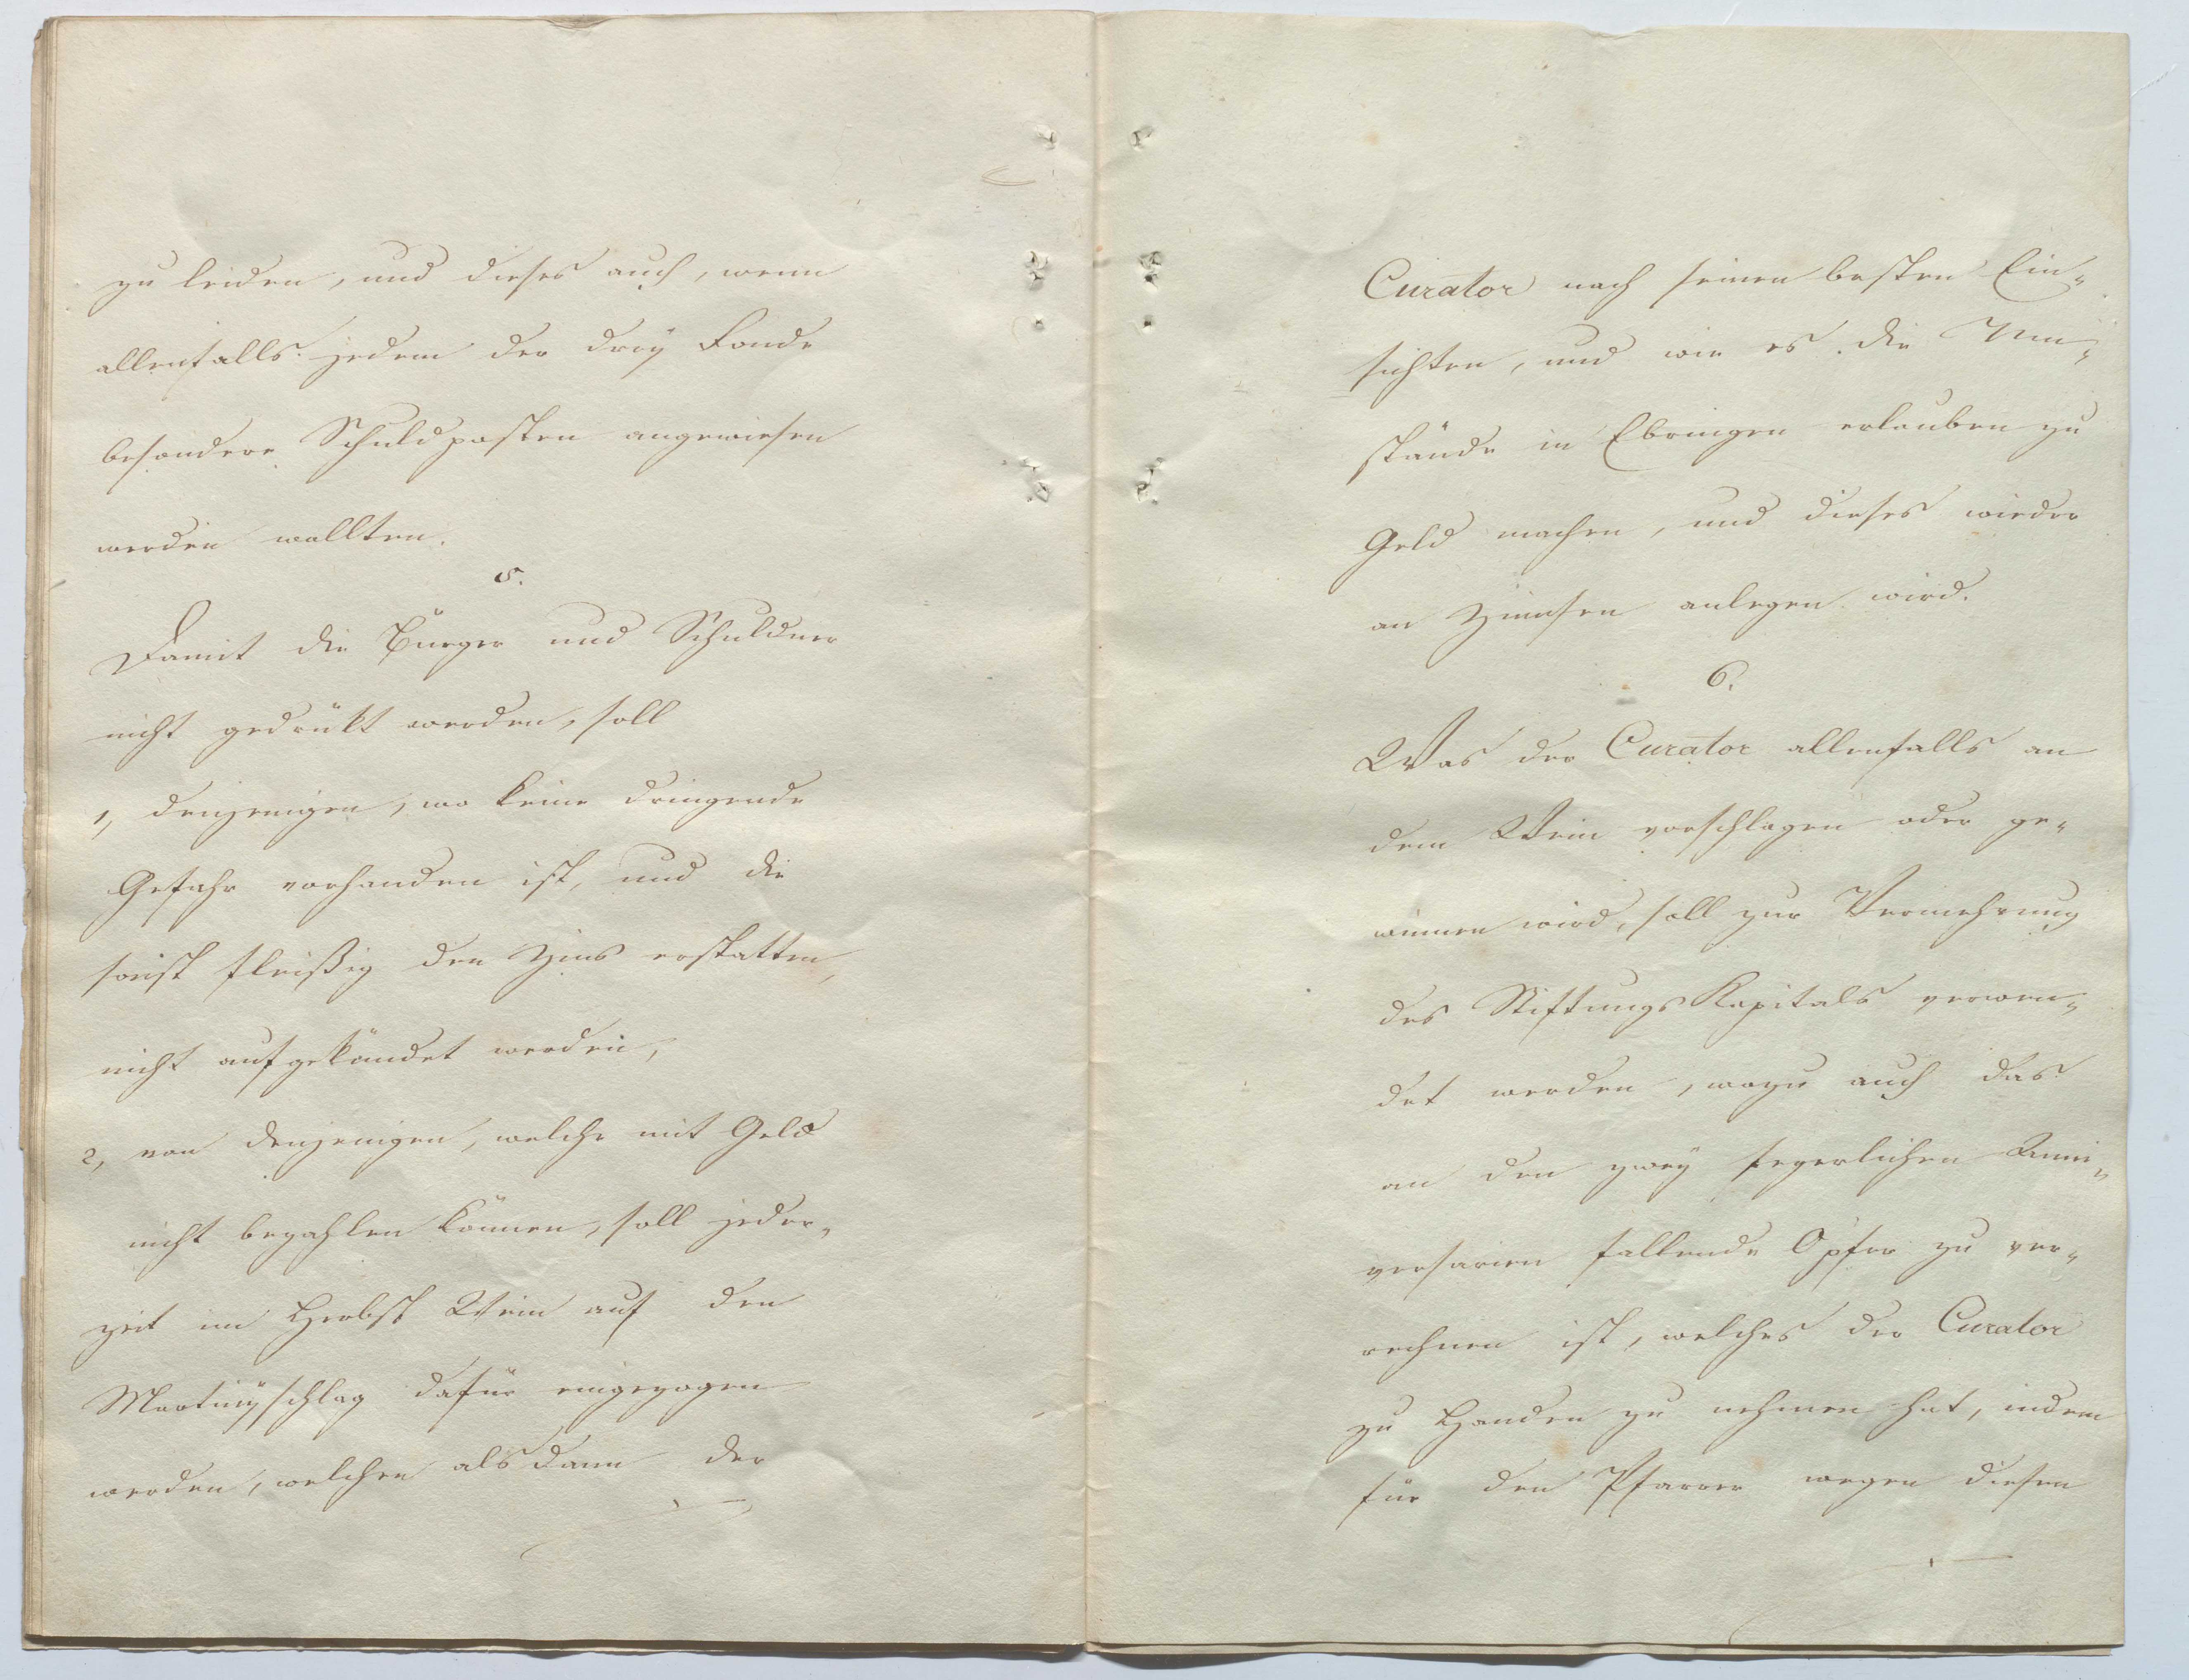 zu leiden, und dieses auch, wenn
allenfalls jedem der drey Fonde
besondere Schuldposten angewiesen
werden wollten.
5.
Damit die Bürger und Schuldner
nicht gedrükt werden, soll
1, denjenigen, wo keine dringende
Gefahr vorhanden ist, und die
sonst fleißig den Zins erstatten,
nicht aufgekündet werden,
2, von denjenigen, welche mit Geld
nicht bezahlen können, soll jeder-
zeit im Herbst Wein auf den
Martinyschlag dafür eingezogen
werden, welchen alsdann der
Curator nach seinen besten Ein-
sichten, und wie es die Um-
stände in Ebringen erlauben zu
Geld machen, und dieses wieder
an Zinnsen anlegen wird.
6.
Was der Curator allenfalls an
dem Wein vorschlagen oder ge-
winnen wird, soll zur Vermehrung
des Stiftungs Kapitals verwen-
det werden, wozu auch das
an den zwey feyerlichen Anni-
versarien fallende Opfer zu ver-
rechnen ist, welches der Curator
zu Handen zu nehmen hat, indem
für den Pfarrer wegen diesen